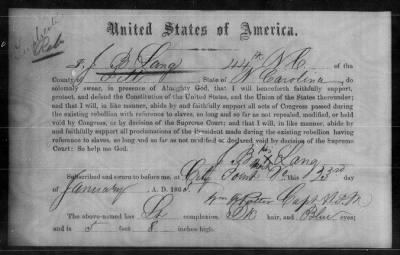 United States of America.
I, J B Lang 44th N. C. of the
County of , State of N Carolina, do
solemnly swear, in presence of Almighty God, that I will henceforth faithfully support,
protect, and defend the Constitution of the United States, and the Union of the States thereunder;
and that I will, in like manner, abide by and faithfully support all acts of Congress passed during
the existing rebellion with reference to slaves, so long and so far as not repealed, modified, or held
void by Congress, or by decision of the Supreme Court; and that I will, in like manner, abide by
and faithfully support all proclamations of the President made during the existing rebellion having
reference to slaves, so long and so far as not modified or declared void by decision of the Supreme
Court: So help me God.
J. B. X Lang
Subscribed and sworn to before me, at City Point Va this 23rd day
of January A. D. 1865.
Capt
The above-named has Lt complexion, Dk hair, and Blue eyes;
and is 5 feet 8 inches high.